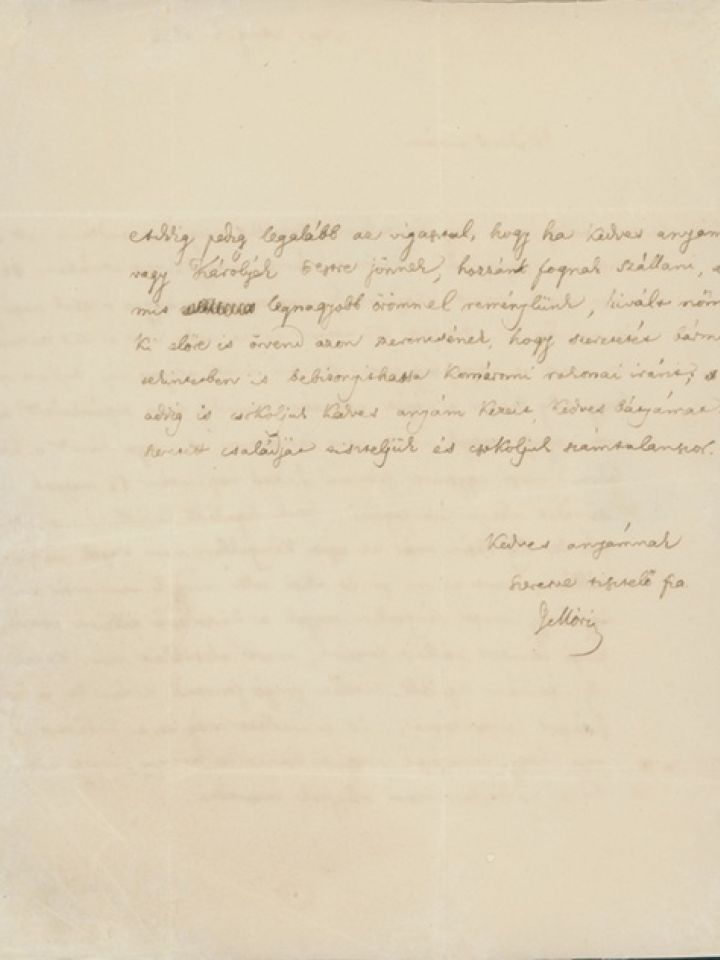 Addig pedig legalább az vigasztal, hogy ha Kedves anyám
vagy Károlyék Pestre jönnek, hozzánk fognak szállani, a
mit legnagyobb örömmel reménylünk, kivált nőm
ki előre is örvend azon szerencsének, hogy szeretetét
tekintetben is bebizonyithassa Komáromi rokonai iránt; s
addig is csókoljuk Kedves anyám Kezeit, Kedves bátyámat
szeretett családját tiszteljük és csókoljuk számtalanszor.
Kedves anyámnak
szeretve tisztelő fia
JMóri